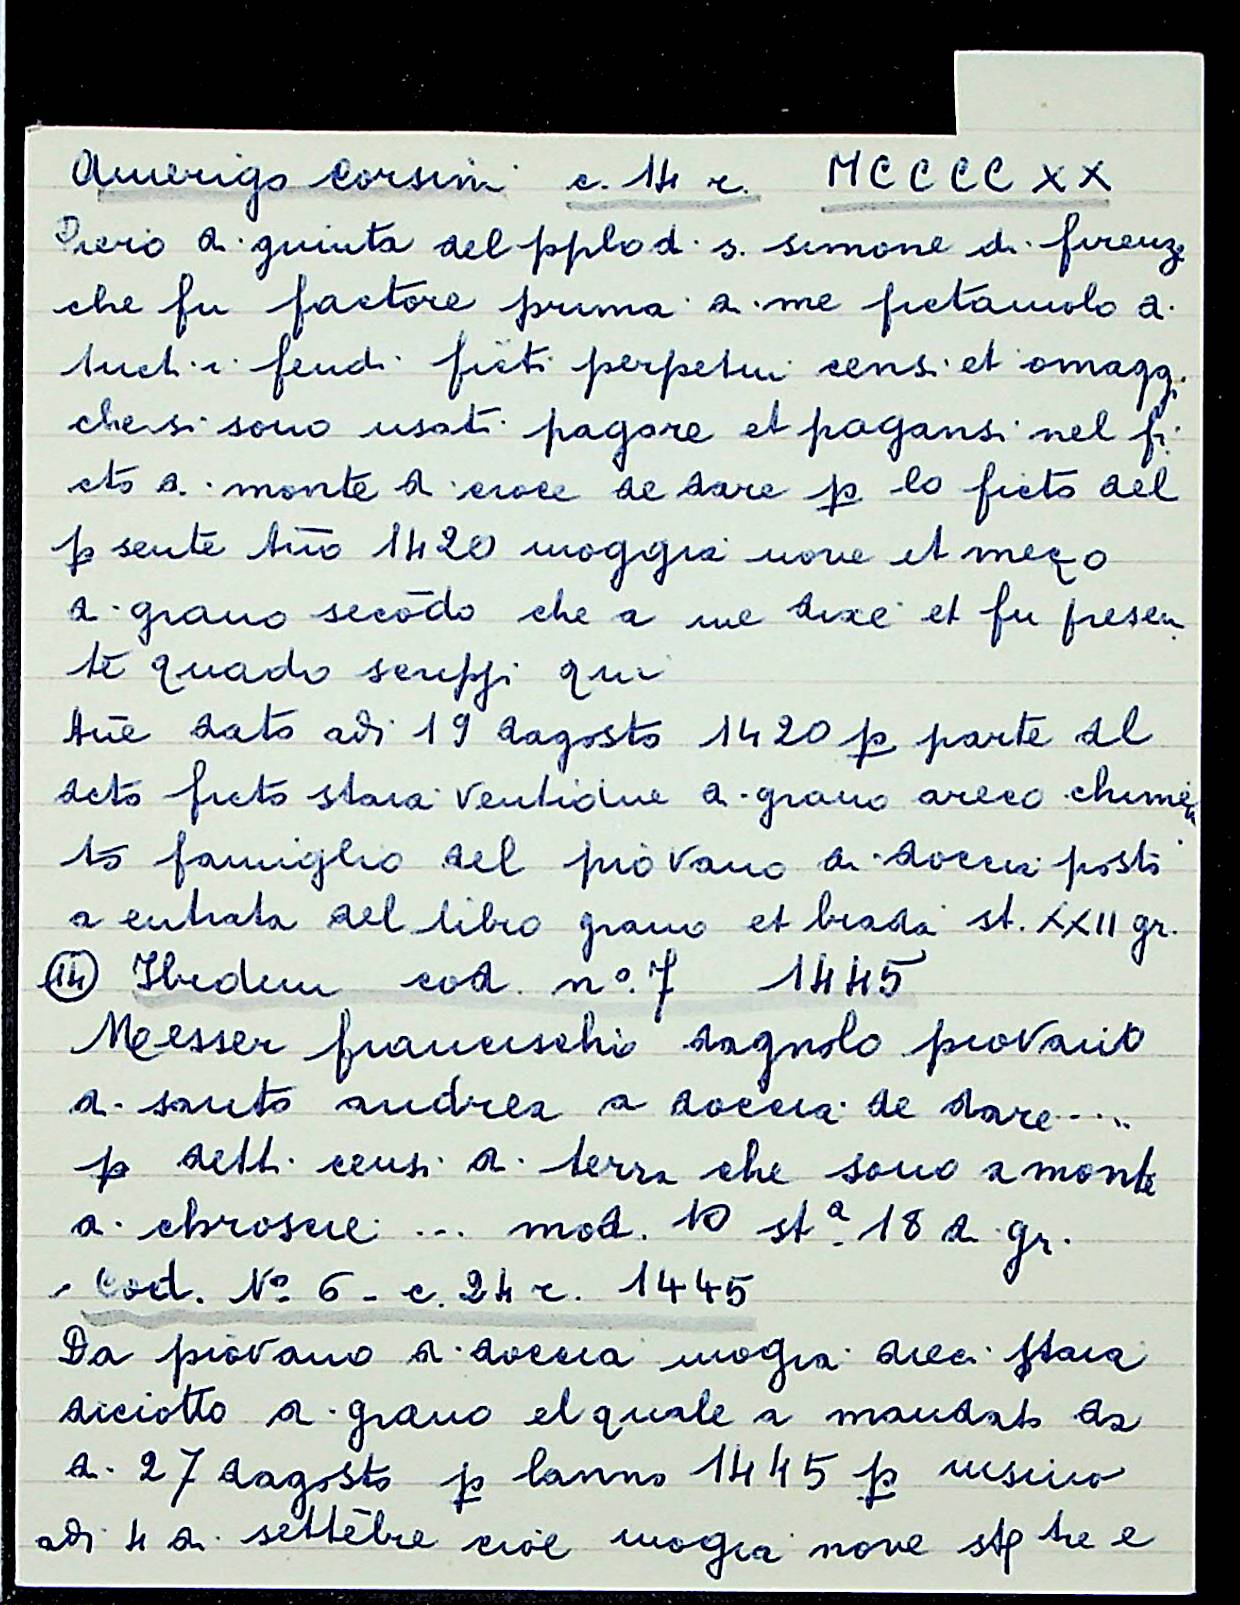 Amerigo Corsini c. 14 r. MCCCCXX
Piero di giunta del pplo d. s. simone di firenze
che fu factore prima di me fictaiuolo di
tucti i feudi ficti perpetui censi et omaggi
che si sono usati pagare et pagansi nel fi
cto di monte di croce de dare p lo ficto del
p sente āno 1420 moggia nove et mezo
di grano secōdo che a me dixe et fu presen
te quādo scrissi qui
Ane dato adi 19 dagosto 1420 p parte del
decto ficto staia ventidue di grano areco chimē
to famiglio del piovano di doccia posto
a entrata del libro grano et biada st. XXII gr.
(14) Ibidem cod. n°. 7 1445
Messer francescho dagnolo piovano
di santo andrea a doccia de dare ....
p detti censi di terra che sono a monte
di chrosce ... mod. 10 st.ª 18 di gr.
Cod. N° 6 - c. 24 r. 1445
Da piovano di doccia mogia dieci staia
diciotto di grano el quale a mandato da
di 27 dagosto p lanno 1445 p insino
adi 4 di settēbre cioe mogia nove st tre e